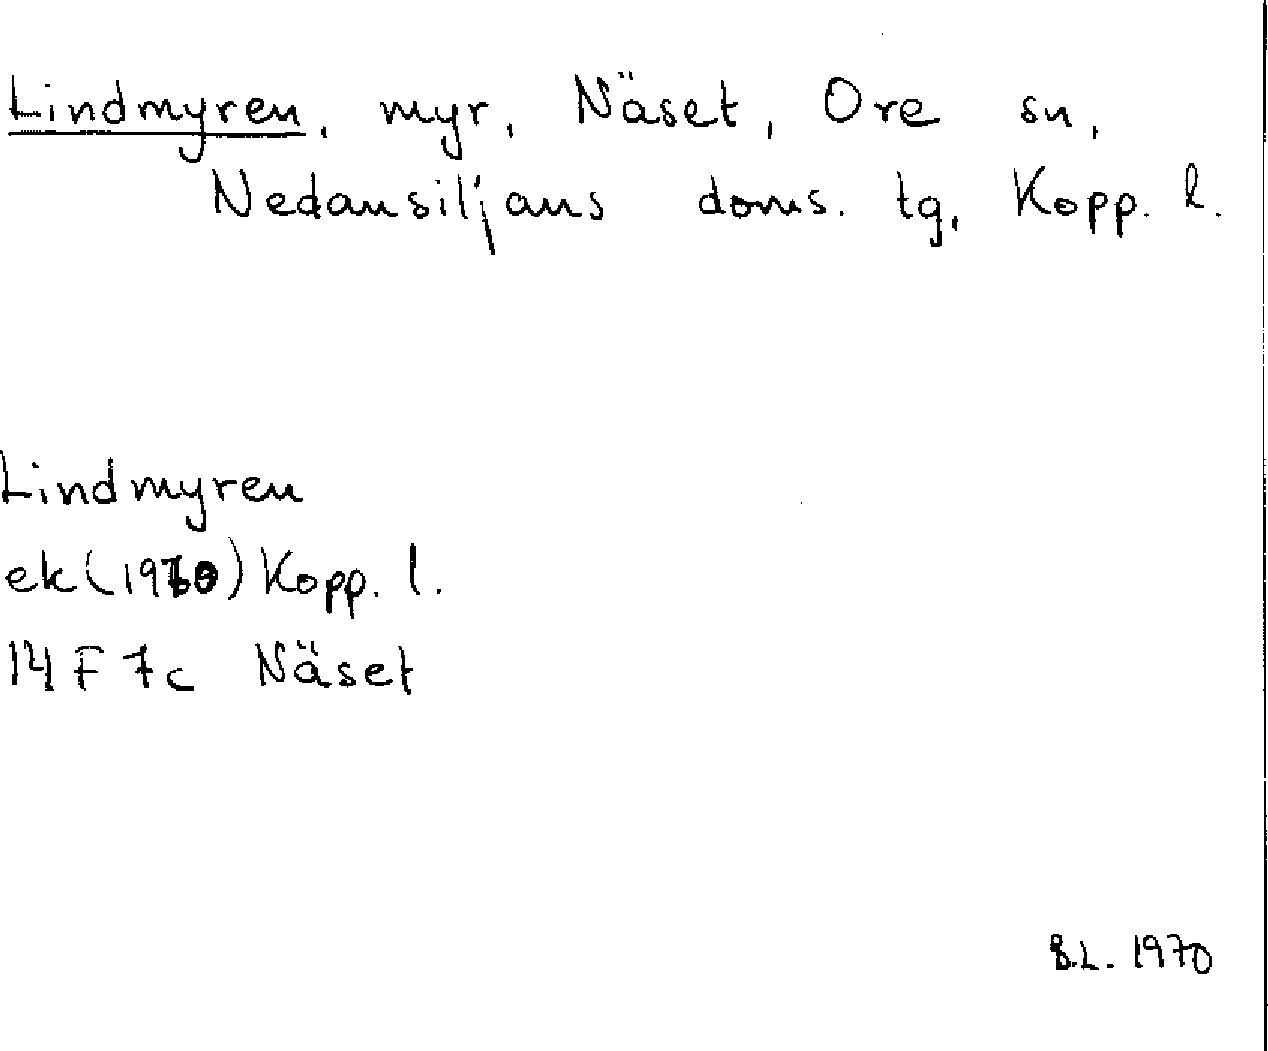 Lindmyren, myr, Näset, Ore sn,
Nedansiljans doms. tg, Kopp. l.
Lindmyren
ek (1960) Kopp. l.
14 F 7c Näset
B.L. 1970